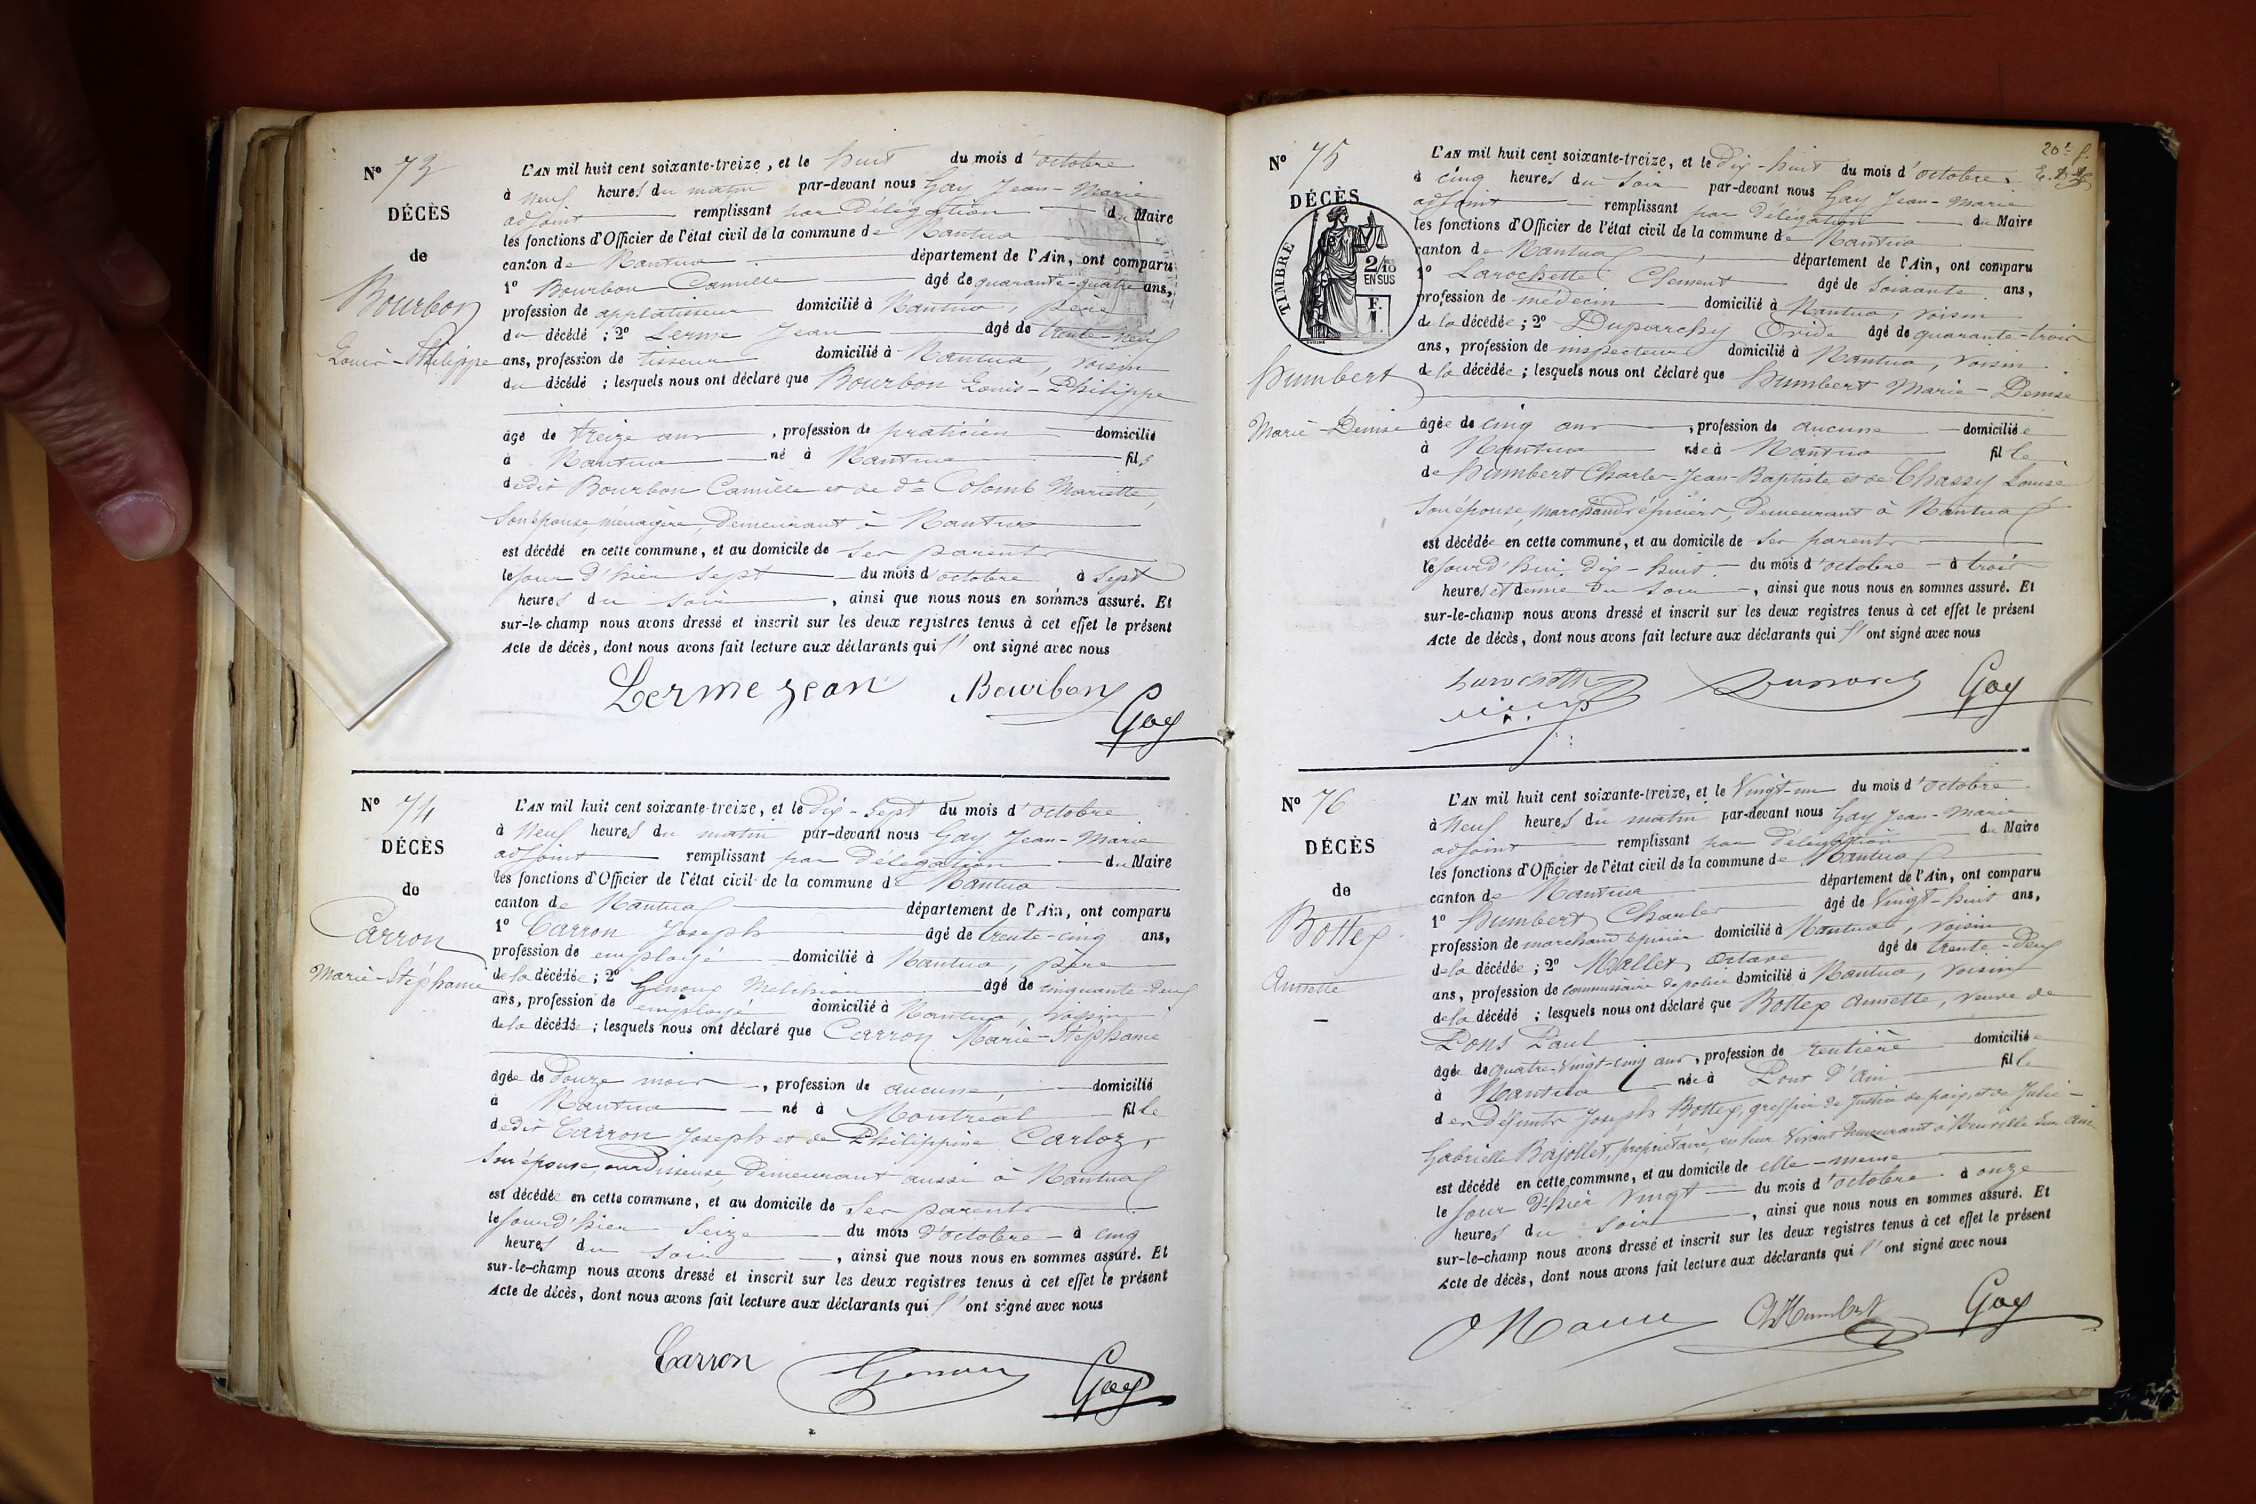 N° 73
DÉCÈS
de
Bourbon
Louis-Philippe
L'AN mil huit cent soixante-treize, et le huit du mois d'octobre
à neuf heures du matin par-devant nous Gay Jean-Marie
adjoint remplissant par délégation du Maire
les fonctions d'Officier de l'état civil de la commune de Nantua
canton de Nantua département de l'Ain, ont comparu
1° Bourbon Camille âgé de quarante-quatre ans,
profession de domicilié à Nantua, père
du décédé ; 2° Lerme Jean âgé de trente-neuf
ans, profession de tisseur domicilié à Nantua, voisin
du décédé ; lesquels nous ont déclaré que Bourbon Louis-Philippe
âgé de treize ans, profession de praticien domicilié
à Nantua né à Nantua fils
dedit Bourbon Camille et de de Colomb Mariette,
son épouse, ménagère, demeurant à Nantua
est décédé en cette commune, et au domicile de ses parents
le jour d'hier sept du mois d'octobre à sept
heures du soir, ainsi que nous nous en sommes assuré. Et
sur-le-champ nous avons dressé et inscrit sur les deux registres tenus à cet effet le présent
Acte de décès, dont nous avons fait lecture aux déclarants qui l' ont signé avec nous
Lerme jean Bourbon
Gay
N° 74
DÉCÈS
de
Carron
Marie-Stéphanie
L'AN mil huit cent soixante-treize, et le dix-sept du mois d'octobre
à neuf heures du matin par-devant nous Gay Jean-Marie
adjoint remplissant par délégation du Maire
les fonctions d'Officier de l'état civil de la commune de Nantua
canton de Nantua département de l'Ain, ont comparu
1° Carron Joseph âgé de trente-cinq ans,
profession de employé domicilié à Nantua, père
de la décédée ; 2° Genoux Melchior âgé de cinquante-deux
ans, profession de employé domicilié à Nantua, voisin
de la décédée ; lesquels nous ont déclaré que Carron Marie-Stéphanie
âgée de douze mois, profession de aucune, domicilié
à Nantua né à Montréal fille
dedit Carron Joseph et de Philippine Carloz,
son épouse, ourdisseuse, demeurant aussi à Nantua
est décédée en cette commune, et au domicile de ses parents
le jourd'hier seize du mois d'octobre à cinq
heures du soir, ainsi que nous nous en sommes assuré. Et
sur-le-champ nous avons dressé et inscrit sur les deux registres tenus à cet effet le présent
Acte de décès, dont nous avons fait lecture aux déclarants qui l' ont signé avec nous
Carron Genoux Gay
20e f.
N° 75
DÉCÈS
TIMBRE
2/10
EN SUS
F.
1.
Humbert
Marie-Denise
L'AN mil huit cent soixante-treize, et le dix-huit du mois d'octobre
à cinq heures du soir par-devant nous Gay Jean-Marie
adjoint remplissant par délégation du Maire
les fonctions d'Officier de l'état civil de la commune de Nantua
canton de Nantua, département de l'Ain, ont comparu
1° Larochette Clément âgé de soixante ans,
profession de médecin domicilié à Nantua, voisin
de la décédée ; 2° Duparchy Ovide âgé de quarante-trois
ans, profession de inspecteur domicilié à Nantua, voisin
de la décédée ; lesquels nous ont déclaré que Humbert Marie-Denise
âgée de cinq ans, profession de aucune domiciliée
à Nantua née à Nantua fille
de Humbert Charles-Jean-Baptiste et de Chassy Louise
son épouse, marchands épiciers, demeurant à Nantua
est décédée en cette commune, et au domicile de ses parents
le jourd'hui dix-huit du mois d'octobre à trois
heures et demie du soir, ainsi que nous nous en sommes assuré. Et
sur-le-champ nous avons dressé et inscrit sur les deux registres tenus à cet effet le présent
Acte de décès, dont nous avons fait lecture aux déclarants qui l' ont signé avec nous
Gay
N° 76
DÉCÈS
de
Bottex
Anisette
L'AN mil huit cent soixante-treize, et le vingt-un du mois d'octobre
à neuf heures du matin par-devant nous Gay Jean-Marie
adjoint remplissant par délégation du Maire
les fonctions d'Officier de l'état civil de la commune de Nantua
canton de Nantua département de l'Ain, ont comparu
1° Humbert Charles âgé de vingt-huit ans,
profession de marchand épicier domicilié à Nantua, voisin
de la décédée ; 2° Octave âgé de trente-deux
ans, profession de commissaire de police domicilié à Nantua, voisin
de la décédé ; lesquels nous ont déclaré que Bottex Anisette, veuve de
Pons Paul
âgée de quatre-vingt-cinq ans, profession de rentière domiciliée
à Nantua née à Pont d'Ain fille
des défunts Joseph Bottex, greffier de justice de paix, et de Julie-
Gabrielle Bajollet, propriétaire, en leur vivant demeurant à Neuville sur Ain
est décédé en cette commune, et au domicile de elle-même
le jour d'hier vingt du mois d'octobre à onze
heures du soir, ainsi que nous nous en sommes assuré. Et
sur-le-champ nous avons dressé et inscrit sur les deux registres tenus à cet effet le présent
Acte de décès, dont nous avons fait lecture aux déclarants qui l' ont signé avec nous
Humbert Gay